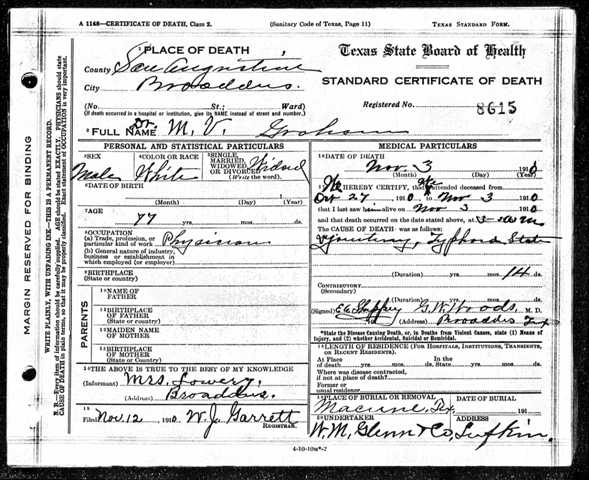 A 1168—CERTIFICATE OF DEATH, Class 2. (Sanitary Code of Texas, Page 11) TEXAS STANDARD FORM.
1 PLACE OF DEATH
County San Augustine
City Broaddus.
(No. St.; Ward)
(If death occurred in a hospital or institution, give its NAME instead of street and number.)
2 FULL NAME Dr. M. V. Graham
Texas State Board of Health
STANDARD CERTIFICATE OF DEATH
Registered No. 8615
PERSONAL AND STATISTICAL PARTICULARS
3 SEX
Male
4 COLOR OR RACE
White
5 SINGLE, MARRIED, WIDOWED OR DIVORCED
(Write the word).
Widowed
6 DATE OF BIRTH
(Month) (Day) (Year)
7 AGE
77 yrs. mos. ds.
8 OCCUPATION
(a) Trade, profession, or particular kind of work
Physician
(b) General nature of industry, business or establishment in which employed (or employer)
9 BIRTHPLACE
(State or country)
PARENTS
10 NAME OF FATHER
11 BIRTHPLACE OF FATHER
(State or country)
12 MAIDEN NAME OF MOTHER
13 BIRTHPLACE OF MOTHER
(State or country)
14 THE ABOVE IS TRUE TO THE BEST OF MY KNOWLEDGE
(Informant) Mrs. Lowery,
(Address) Broaddus.
15
Filed Nov. 12, 1910 W. J. Garrett
REGISTRAR.
MEDICAL PARTICULARS
16 DATE OF DEATH
Nov 3 1910
(Month) (Day) (Year)
HEREBY CERTIFY, that attended deceased from
Oct 27, 1910, to Nov 3 1910
that I last saw him alive on Nov 3 1910
and that death occurred on the date stated above, at
The CAUSE OF DEATH was as follows:
Typhoid State
(Duration) yrs. mos. 14 ds.
CONTRIBUTORY
(Secondary)
(Duration) yrs. mos. ds.
(Signed) G. W. Woods M. D.
(Address) Broaddus Tex
*State the Disease Causing Death, or, in Deaths from Violent Causes, state (1) Means of Injury, and (2) whether Accidental, Suicidal or Homicidal.
18 LENGTH OF RESIDENCE (FOR HOSPITALS, INSTITUTIONS, TRANSIENTS, OR RECENT RESIDENTS).
At Place of death yrs. mos. ds. In the State yrs. mos. ds.
Where was disease contracted, if not at place of death?
Former or usual residence
19 PLACE OF BURIAL OR REMOVAL
DATE OF BURIAL
191
20 UNDERTAKER
ADDRESS
W. M. Glenn & Co, Lufkin.
4-10-10m*-2
MARGIN RESERVED FOR BINDING
WRITE PLAINLY, WITH UNFADING INK—THIS IS A PERMANENT RECORD.
N. B.—Every item of information should be carefully supplied. AGE should be stated EXACTLY. PHYSICIANS should state CAUSE OF DEATH in plain terms, so that it may be properly classified. Exact statement of OCCUPATION is very important.